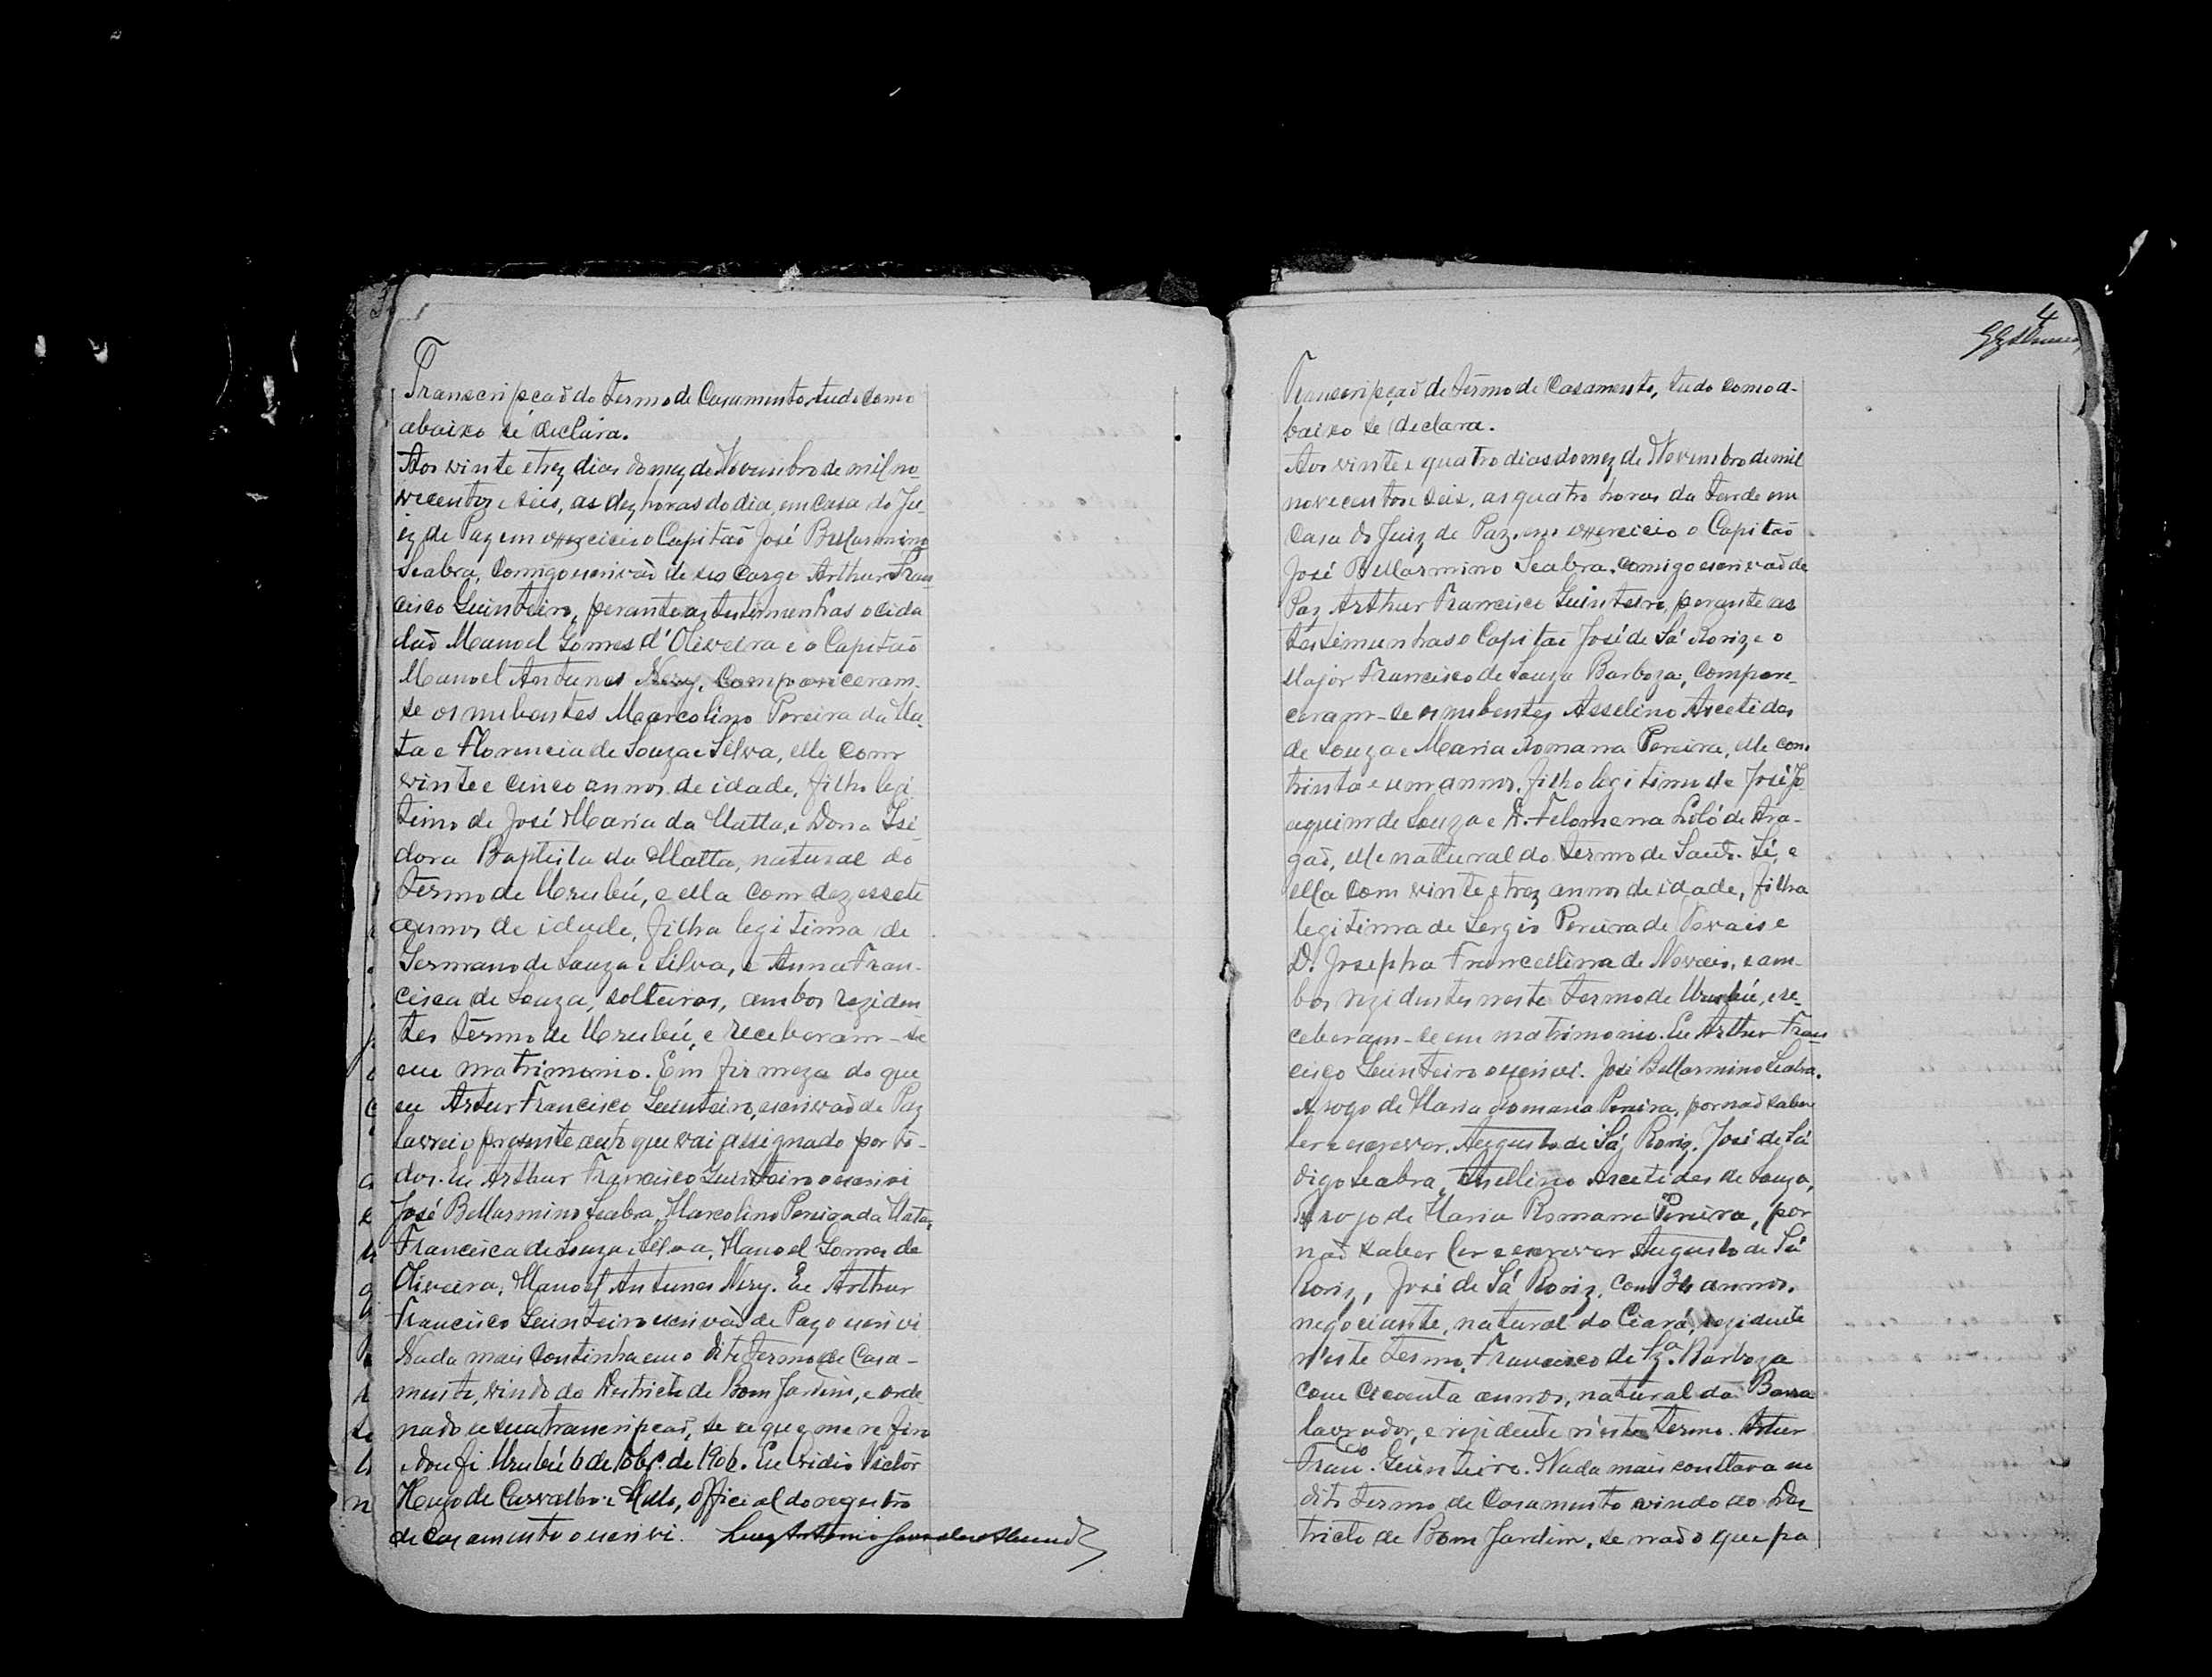 Transcripção do termo de Casamento, tudo como
abaixo se declara.
Aos vinte e trez dias do mez de Novembro de mil no-
vecentos e seis, as dez horas do dia, em casa do Ju-
iz de Paz em exercicio o Capitão José Bellarmino
Seabra, comigo escrivão de seo cargo Arthur Fran
cisco Guinteiro, perante as testemunhas o cida
dão Manoel Gomes d'Oliveira e o Capitão
Manoel Antunes Nery, compariceram-
se os nubentes Marcolino Pereira da Ma
ta e Florencia de Souza e Silva, elle com
vinte e cinco annos de idade, filho legi
timo de José Maria da Matta, e Dona Isi-
dora Baptista da Matta, natural do
termo de Urubú, e ella com dezessete
annos de idade, filha legitima de
Germano de Souza e Silva, e Anna Fran-
cisca de Souza, solteiros, ambos reziden
tes termo de Urubú, e receberam-se
em matrimonio. Em firmeza do que
eu Artur Francisco Guinteiro, escrivão de Paz
lavrei o presente auto que vai assignado por to-
dos. Eu Arthur Francisco Guinteiro o escrivi
José Bellarmino Seabra, Marcolino Pereira da Mata,
Francisca de Souza e Silva, Manoel Gomes de
Oliveira, Manoel Antunes Nery. Eu Arthur
Francisco Guinteiro escrivão de Paz o escrivi
Nada mais continha em o dito termo de Casa-
mento, vindo do Destricto de Bom Jardim, e orde
nado a sua transcripção, se a que me refiro
e dou fé Urubú 6 de 10br. de 1906. Eu Victor
Hugo de Carvalho e Mello, official do registro
de casamento o escrivi. Luiz Antonio
4
Transcripção de termo de Casamento, tudo como a-
baixo se declara.
Aos vinte e quatro dias do mez de Novembro de mil
novecentos e seis, as quatro horas da tarde em
casa do Juiz de Paz, em exercicio o Capitão
José Bellarmino Seabra, comigo escrivão de
Paz Arthur Francisco Guinteiro, perante as
testimunhas o Capitão José de Sá Roriz e o
Major Francisco de Souza Barboza, compare-
ceram-se os nubentes Asselino Arcetides
de Souza e Maria Romana Pereira, elle com
trinta e um annos, filho legitimo de José Jo
aquim de Souza e D. Filomena Loló de Ara-
gão, elle natural do termo de Santo Sé, e
ella com vinte e trez annos de idade, filha
legitima de Sergio Pereira de Novais e
D. Josepha Francellina de Novais, e am-
bos rezidentes neste termo de Urubú, e re-
ceberam-se em matrimonio. Eu Arthur Fran
cisco Guinteiro o escrivi. José Bellarmino Seabra.
A rogo de Maria Romana Pereira, por não saber
ler e escrever. Augusto de Sá Roriz. José de Sá
digo Seabra, Asellino Arcetides de Souza,
A rogo de Maria Romana Pereira, por
não saber ler e escrever Augusto de Sá
Roriz, José de Sá Roriz, com 34 annos,
negociante, natural do Ceará, rezidente
n'este termo, Francisco de Sza. Barboza
com cecoenta annos, natural da Barra
lavrador, e rezidente n'este termo. Artur
Franco. Guinteiro. Nada mais constava em
dito termo de Casamento vindo do Des-
tricto de Bom Jardim, se não o que pa